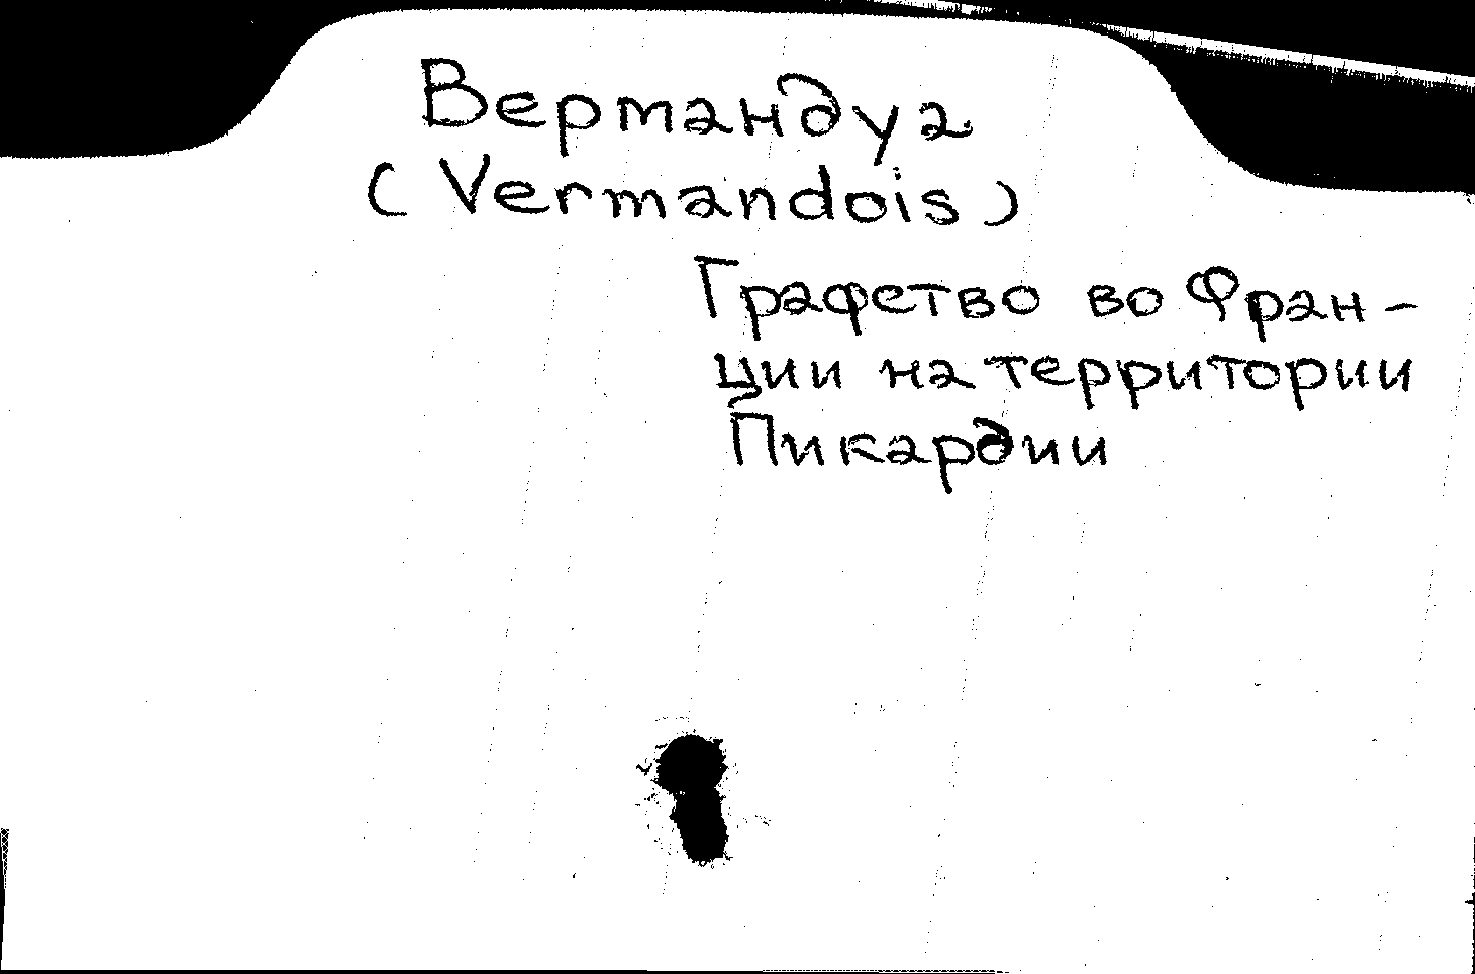 Вермандуа
(Vermandois)
Графство во Фран-
ции на территории
Пикардии